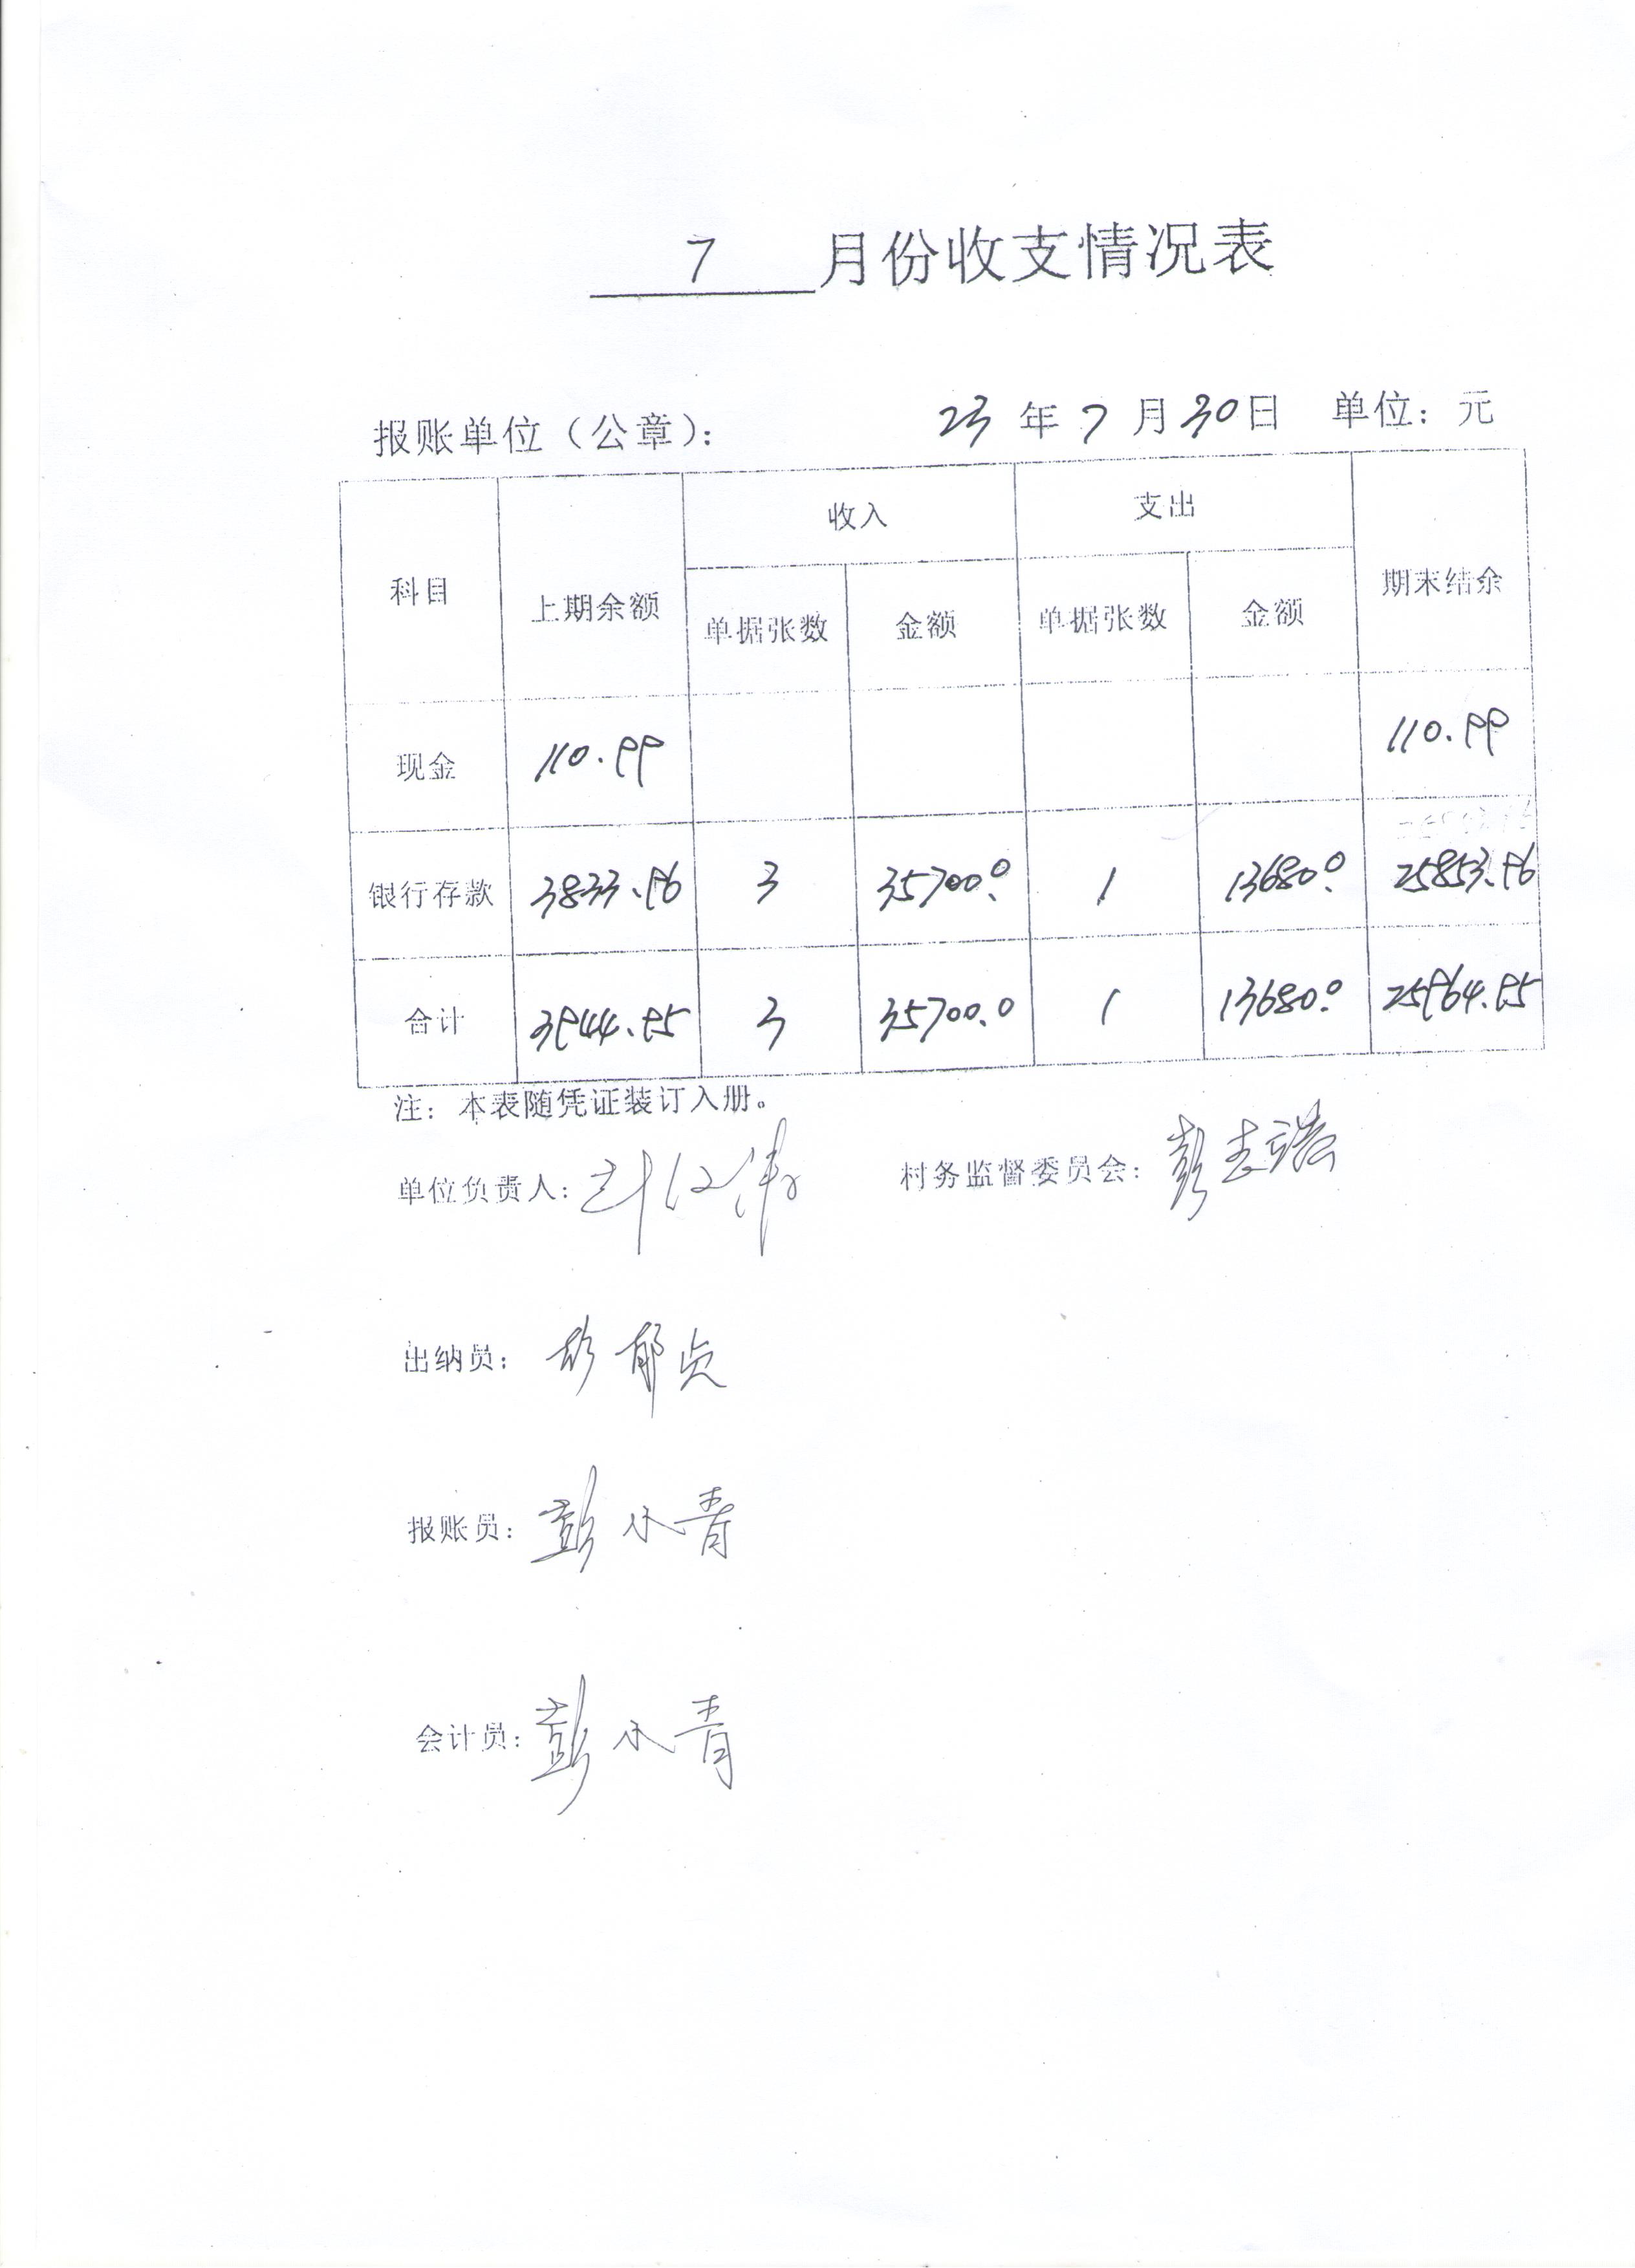 7 月份收支情况表
报账单位（公章）： 23 年 7 月 30 日 单位：元
科目 上期余额 收入 支出 期末结余
单据张数 金额 单据张数 金额
现金 110.99 110.99
银行存款 3833.96 3 35700.0 1 13680.0 25853.96
合计 3944.95 3 35700.0 1 13680.0 25964.95
注：本表随凭证装订入册。
单位负责人： 村务监督委员会：彭志
出纳员：彭郁贞
报账员：彭小青
会计员：彭小青